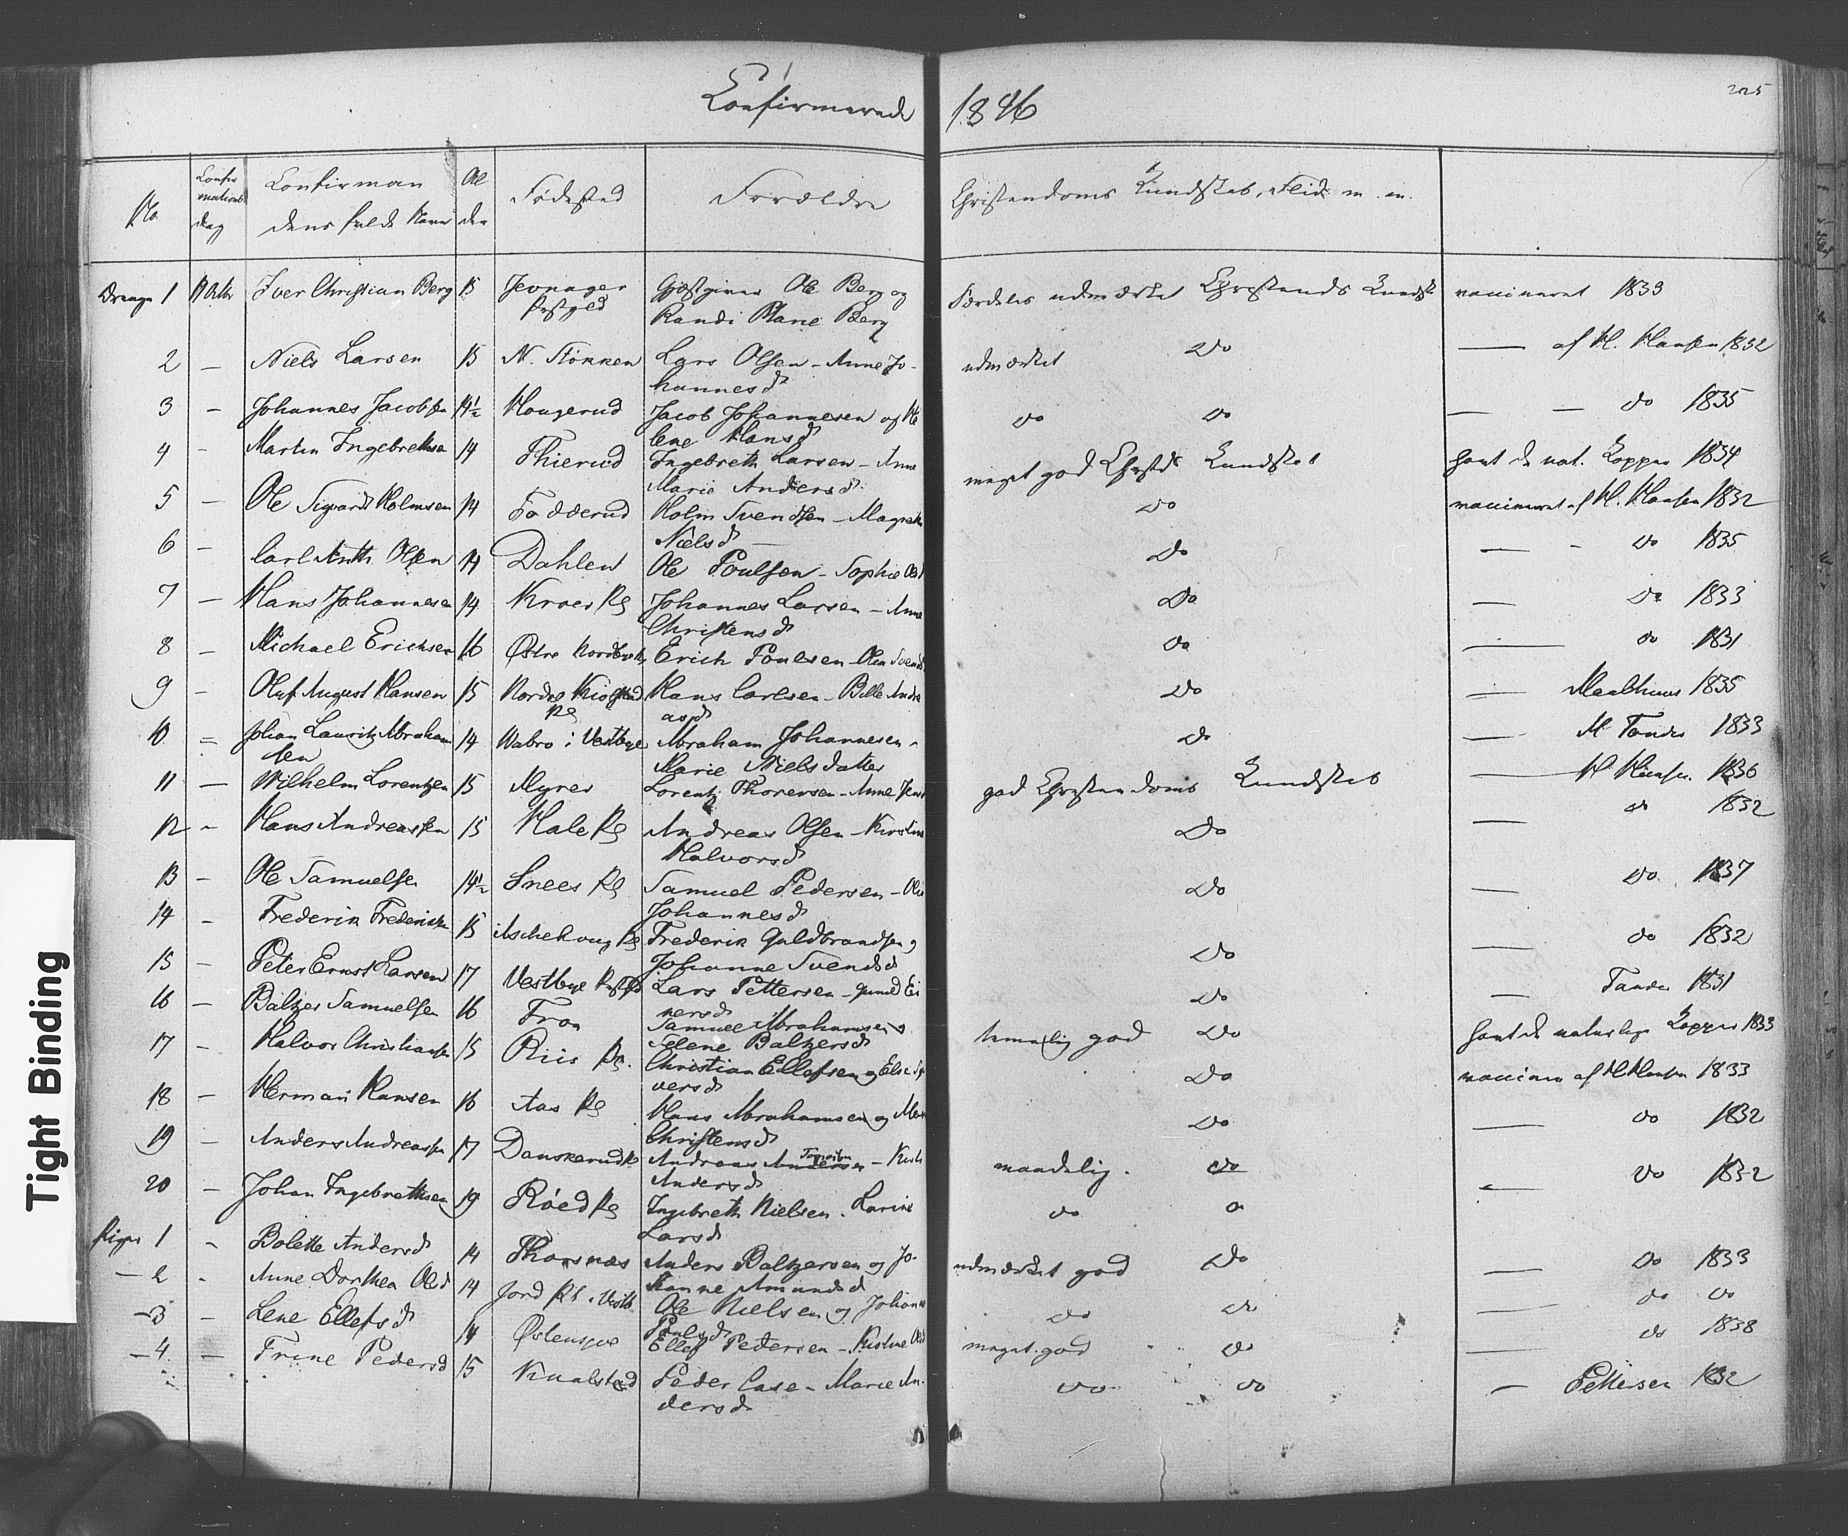 Confirmerede 1846
225
No.
Confirmations Dag
Confirmandens fulde Navn
Alder
Fødested
Forældre
Christendoms Kundskab, Flid m. m.
Drenge 1 11 Octbr Iver Christian Berg 15 Jevnager Præstgjeld Gjæstgiver Ole Berg og Randi Marie Berg Særdeles udmærket Christends Kundsk vaccineret 1833
2 — Niels Larsen 15 N. Støkken Lars Olsen – Anne Johannesd udmærket Do — af H. Hansen 1832
3 — Johannes Jacobsen 14½ Haugerud Jacob Johannesen og Helene Hansd do do — — do 1835
4 — Martin Ingebrethsen 14 Thierud Ingebreth Larsen – Anne Marie Andersd. meget god Christds Kundskab havt de nat. Kopper 1834
5 — Ole Sigvardt Holmsen 14 Fodderud Holm Svendsen – Magrethe Nielsd — Do vaccineret af H. Hansen 1832
6 — Carl Anth Olsen 14 Dahlen Ole Poulsen – Sophie Olsd Do — - do 1835
7 — Hans Johannesen 14 Kroer Pl Johannes Larsen – Anne Christensd Do — Do 1833
8 — Michael Erichsen 16 Østre Nordbye Erich Poulsen – Olea Svends Do — do 1831
9 — Oluf August Hansen 15 Nordre Kiølstad Pl Hans Carlsen – Belle Andreasd Do — Maalthuus 1835
10 — Johan Lauritz Abrahamsen 14 Wabro i Vestbye Abraham Johannesen – Marie Nielsdatter Do — M. Fander 1833
11 — Wilhelm Lorentzen 15 Myrer Lorentz Thoresen – Anne Jens god Christendoms Kundskab — H Hansen 1836
12 - Hans Andreassen 15 Hale Pl Andreas Olsen – Kirstine Halvorsd Do — do 1832
13 — Ole Samuelsen 14½ Snees Pl Samuel Pedersen – Olea Johannesd Do — Do 1837
14 — Frederik Frederiksen 15 Aschehoug Pl Frederik Guldbrandsen og Johanne Svendsd Do — do 1832
15 — Peter Ernst Larsen 17 Vestbye Præstgd Lars Pettersen – Gunild Einersd Do — Fander 1831
16 — Baltzer Samuelsen 16 Fron Samuel Abrahamsen & Helene Baltzersd temmelig god Do havt de naturlige Kopper 1833
17 — Halvor Christiansen 15 Riis Pl. Christian Ellefsen og Else Syversd Do vaccine af H Hansen 1833
18 — Herman Hansen 16 Aas Pl Hans Abrahamsen og Mari Christensd Do — do 1832
19 — Anders Andreassen 17 Danskerud Pl Andreas Andersen – Kirsti Andersd maadelig. Do — Do 1832
20 — Johan Ingebrethsen 19 Røed Pl Ingebreth Nielsen. Karine Larsd do do
Piger 1 - Bolette Andersd 14 Thorsnæs Anders Baltzersen og Johanne Amundsd udmærket god Do — Do 1833
— 2 - Anne Dorthea Olsd 14 Jord Pl i Vestb Ole Nielsen og Johanne Paulsd do do — do do
— 3 - Lene Ellefsd 14 Østensjøe Ellef Pedersen – Kistine Olsd meget god do — do 1838
— 4 — Trine Pedersd 15 Knalstad Peder Case – Marie Andersd do do — Pettersen 1832
Tight Binding